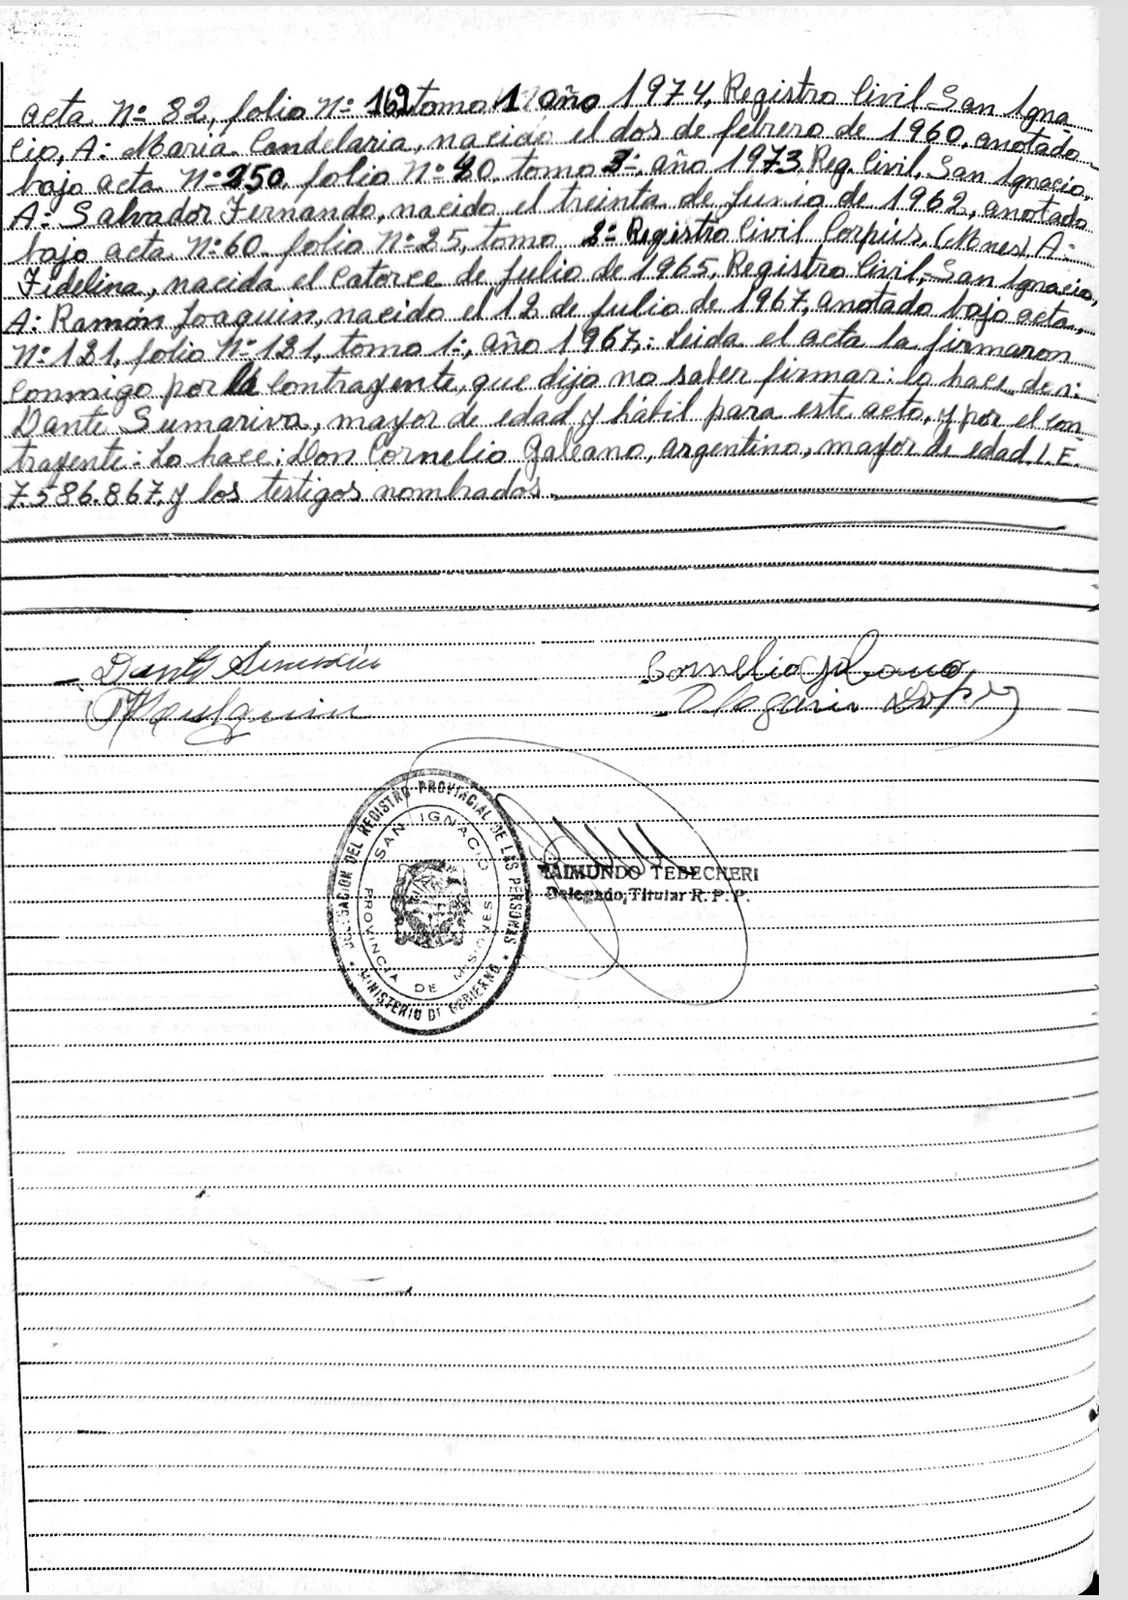 acta Nº 82, folio Nº 162 tomo 1º año 1974, Registro Civil San Igna
cio, A: María Candelaria, nacido el dos de febrero de 1960, anotado
bajo acta Nº 250, folio Nº 80, tomo 3º, año 1973 Reg. Civil, San Ignacio,
A: Salvador Fernando, nacido el treinta de Junio de 1962, anotado
bajo acta Nº 60, folio Nº 25, tomo 2º Registro Civil Corpus, (Mnes) A:
Fidelina, nacida el Catorce de Julio de 1965, Registro Civil, San Ignacio,
A: Ramón Joaquin, nacido el 12 de Julio de 1967, anotado bajo acta,
Nº 121, folio Nº 121, tomo 1º, año 1967,: Leida el acta la firmaron
conmigo por la contrayente, que dijo no saber firmar: lo hace dn:
Dante Sumariva, mayor de edad y hábil para este acto, y por el con
trayente: Lo hace: Don Cornelio Galeano, argentino, mayor de edad, L.E.
7.586.867, y los testigos nombrados.
Dante Cornelio Galeano
Olegario Lopez
DELEGACION DEL REGISTRO PROVINCIAL DE LAS PERSONAS
SAN IGNACIO
PROVINCIA DE MISIONES
MINISTERIO DE GOBIERNO
RAIMUNDO TEDECHERI
Delegado Titular R. P. P.